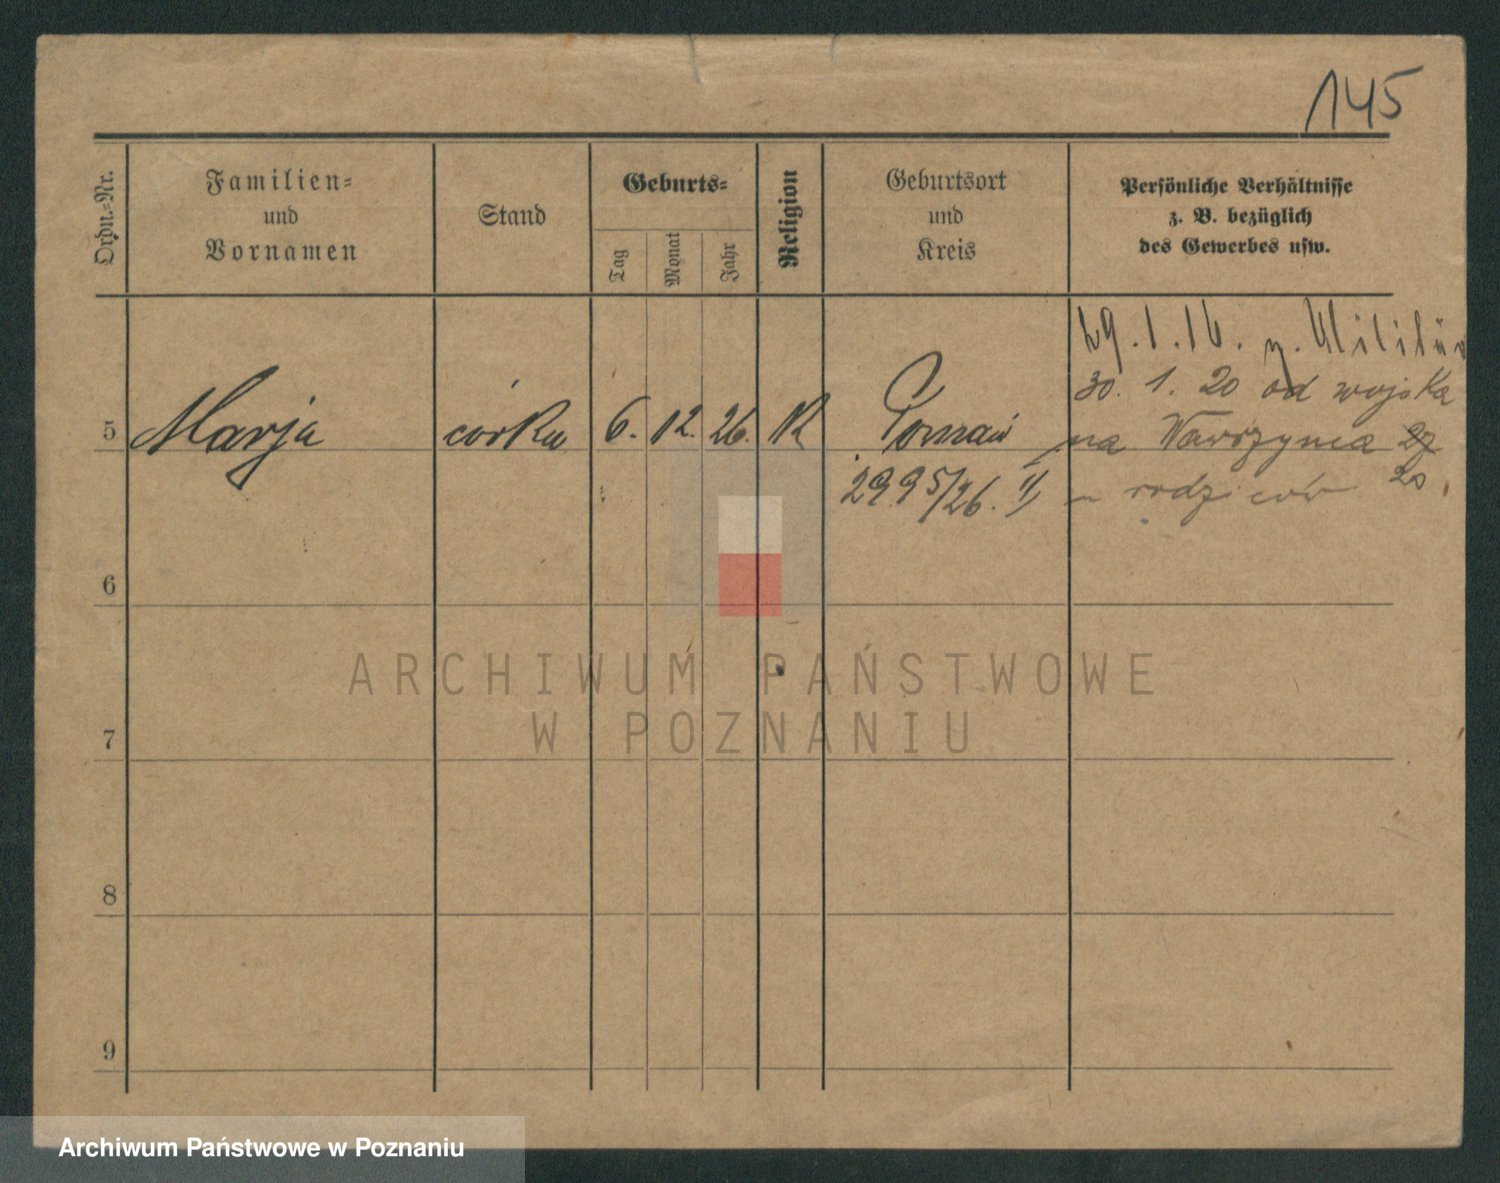 145
Ordn.-Nr.
Familien-
und
Vornamen
Stand
Geburts-
Tag
Monat
Jahr
Religion
Geburtsort
und
Kreis
Persönliche Verhältnisse
z. B. bezüglich
des Gewerbes usw.
29.1.16. z. Militär
30. 1. 20 od wojska
5 Marja córka 6. 12. 26. K Poznań na Wawrzynca 27
2995/26. II u rodziców 20.
6
ARCHIWUM PAŃSTWOWE
W POZNANIU
7
8
9
Archiwum Państwowe w Poznaniu